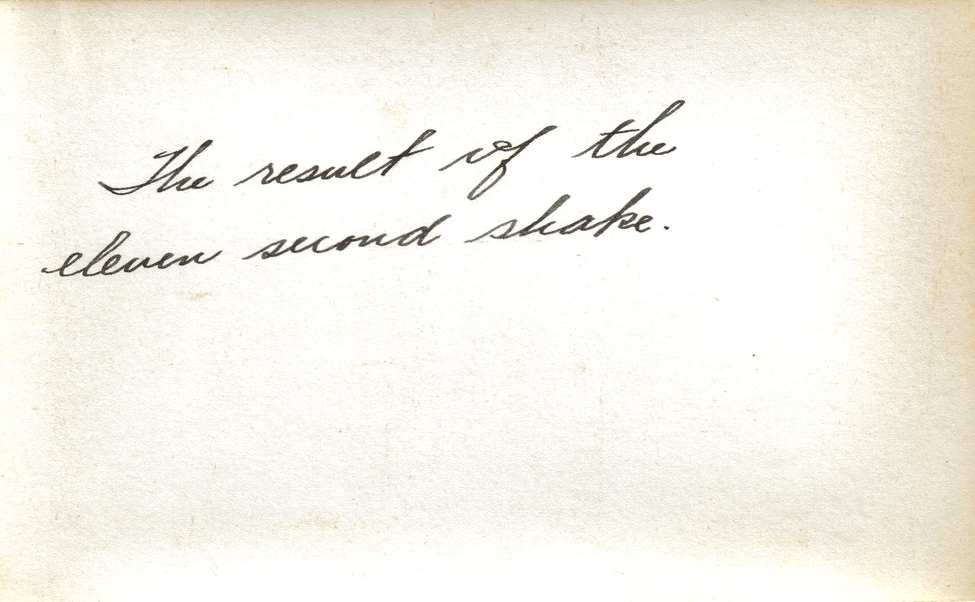 The result of the
eleven second shake.